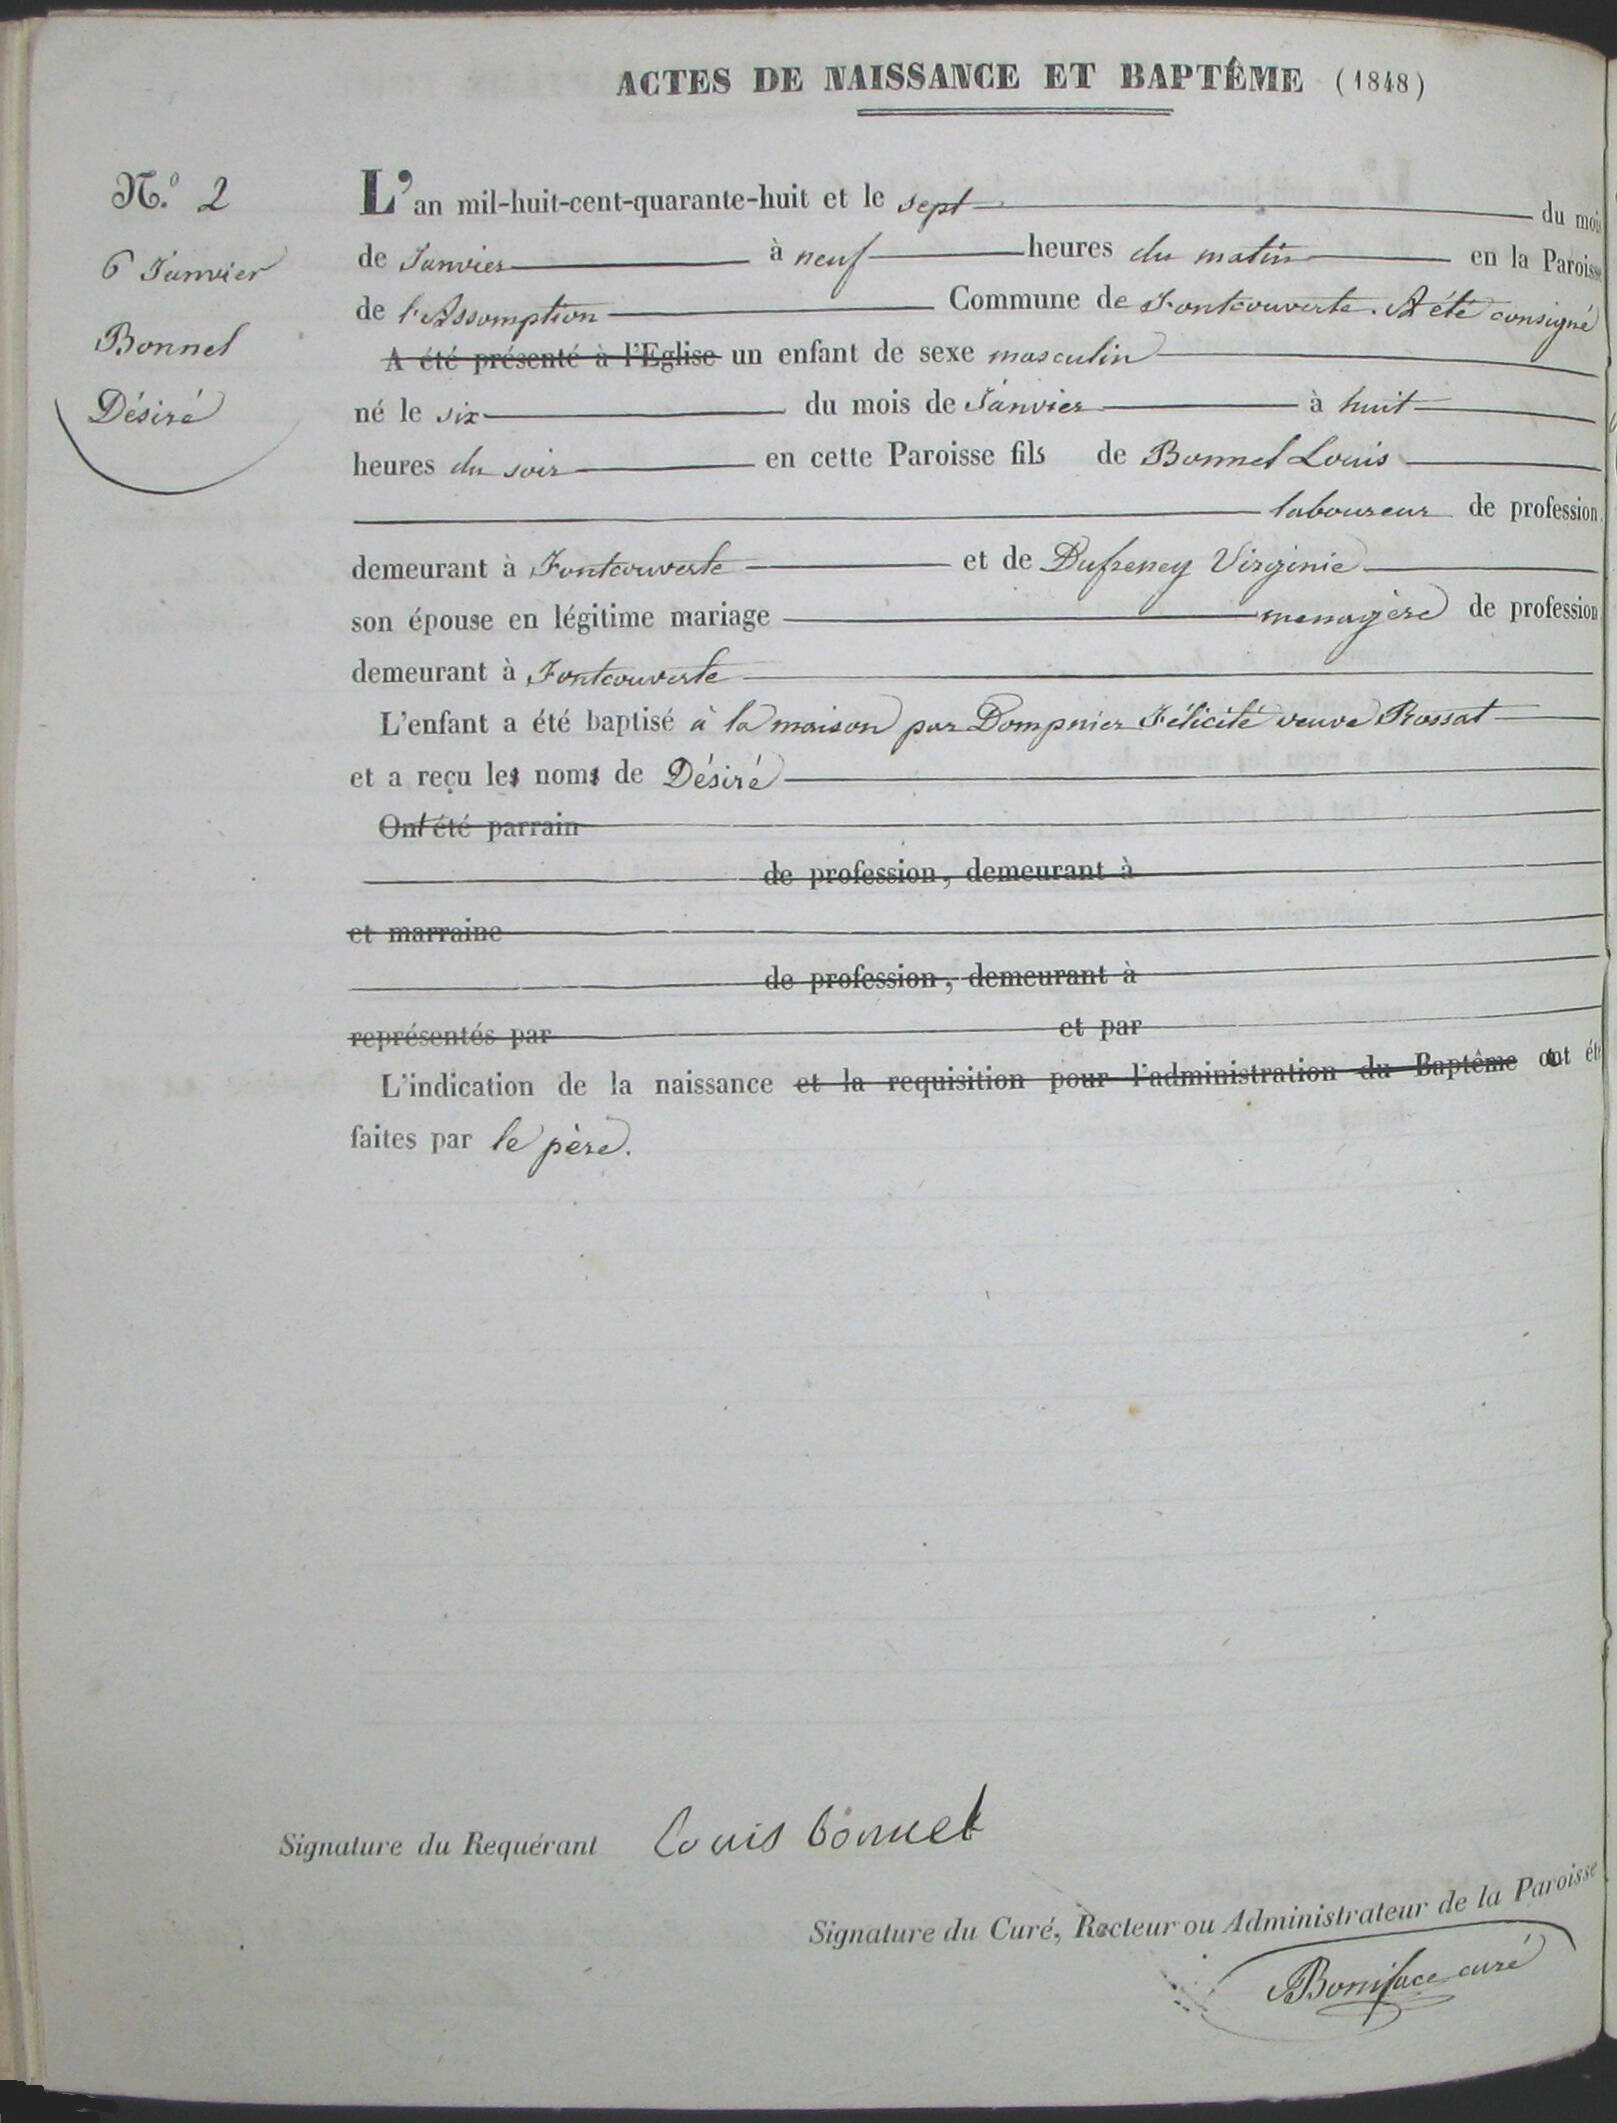 ACTES DE NAISSANCE ET BAPTÊME (1848)
N.º 2
6 Janvier
Bonnel
Désiré
L'an mil-huit-cent-quarante-huit et le sept du mois
de Janvier à neuf heures du matin en la Paroisse
de l'Assomption Commune de Fontcouverte. A été consigné
A été présenté à l'Eglise un enfant de sexe masculin
né le six du mois de Janvier à huit
heures du soir en cette Paroisse fils de Bonnel Louis
laboureur de profession
demeurant à Fontcouverte et de Dufreney Virginie
son épouse en légitime mariage menagère de profession
demeurant à Fontcouverte
L'enfant a été baptisé à la maison par Dompnier Félicité veuve Rossat
et a reçu les noms de Désiré
Ont été parrain
de profession, demeurant à
et marraine
de profession, demeurant à
représentés par et par
L'indication de la naissance et la requisition pour l'administration du Baptême ont été
faites par le père.
Signature du Requérant Louis bonnel
Signature du Curé, Recteur ou Administrateur de la Paroisse
Boniface curé